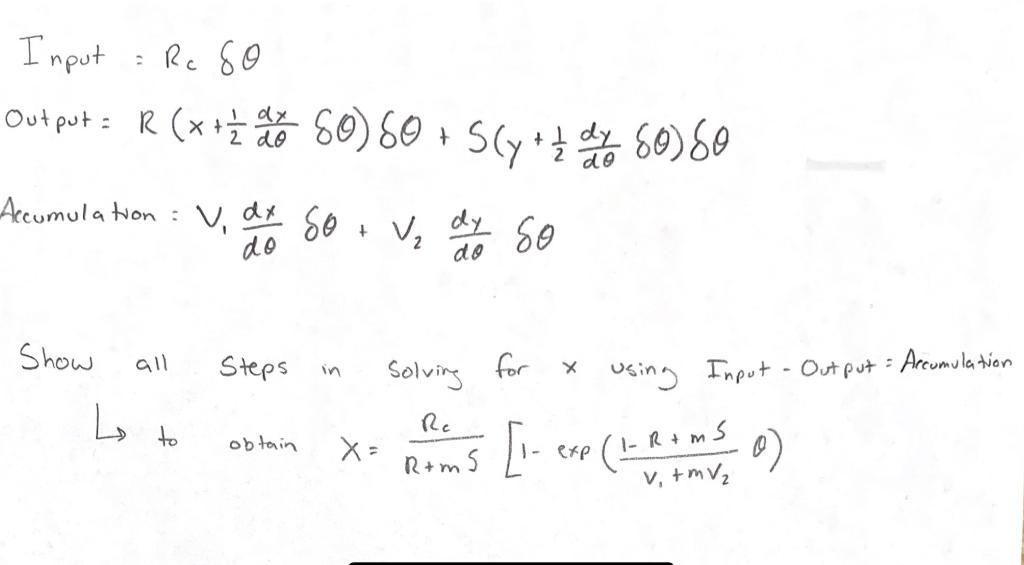 Input = Rc δθ
Output = R (x + 1/2 dx/dθ δθ) δθ + S(y + 1/2 dy/dθ δθ) δθ
Accumulation : V₁ dx/dθ δθ + V₂ dy/dθ δθ
Show all steps in solving for x using Input - Output = Accumulation
↳ to obtain X = Rc/(R+mS) [1- exp (1- R + mS / V₁ + mV₂ θ)